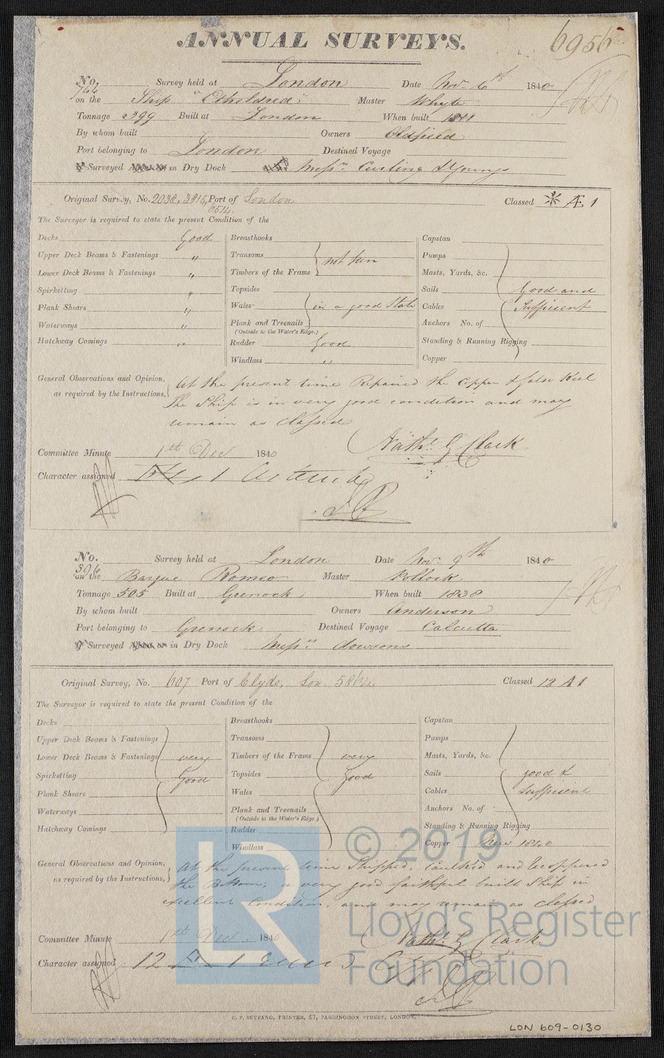 ANNUAL SURVEYS.
6956
No. 744 Survey held at London Date Nov. 6th 1840
on the Ship "Etheldred" Master Whyte
Tonnage 399 Built at London When built
By whom built Owners Oldfield
Port belonging to London Destined Voyage
Surveyed in Dry Dock Messrs. Curling & Youngs
Original Survey, No. 2038, Port of London Classed Æ 1
The Surveyor is required to state the present Condition of the
Decks Good
Upper Deck Beams & Fastenings "
Lower Deck Beams & Fastenings "
Spirketting "
Plank Shears "
Waterways "
Hatchway Comings "
Breasthooks
Transoms
Timbers of the Frame not seen
Topsides
Wales in a good State
Plank and Treenails
(Outside to the Water's Edge.)
Rudder Good
Windlass "
Capstan
Pumps
Masts, Yards, &c.
Sails Good and
Cables Sufficient
Anchors No. of
Standing & Running Rigging
Copper
General Observations and Opinion, as required by the Instructions, At the present time Repaired the Copper & false Keel
The Ship is in very good condition and may
remain as classed
Nathl. G Clark
Committee Minute 1st Dec 1840
Character assigned
No. 396 Survey held at London Date Nov. 9th 1840
on the Barque Romeo Master Pollock
Tonnage 505 Built at Greenock When built 1838
By whom built Owners Anderson
Port belonging to Greenock Destined Voyage Calcutta
Surveyed in Dry Dock Messrs Dowsons
Original Survey, No. 607 Port of Clyde, Lon Classed 12 A 1
The Surveyor is required to state the present Condition of the
Decks
Upper Deck Beams & Fastenings
Lower Deck Beams & Fastenings very
Spirketting Good
Plank Shears
Waterways
Hatchway Comings
Breasthooks
Transoms
Timbers of the Frame very
Topsides Good
Wales
Plank and Treenails
(Outside to the Water's Edge.)
Rudder
Windlass
Capstan
Pumps
Masts, Yards, &c.
Sails good &
Cables Sufficient
Anchors No. of
Standing & Running Rigging
Copper New 1840
General Observations and Opinion, as required by the Instructions, At the present time Stripped, Caulked and Recoppered
the Bottom, a very good faithful built Ship in
excellent Condition, and may remain as classed
Nathl. G Clark
Committee Minute 1st Dec 1840
Character assigned 12
LR
© 2019
Lloyd's Register
Foundation
C. F. SEYFANG, PRINTER, 57, FARRINGDON STREET, LONDON.
LON 609-0130